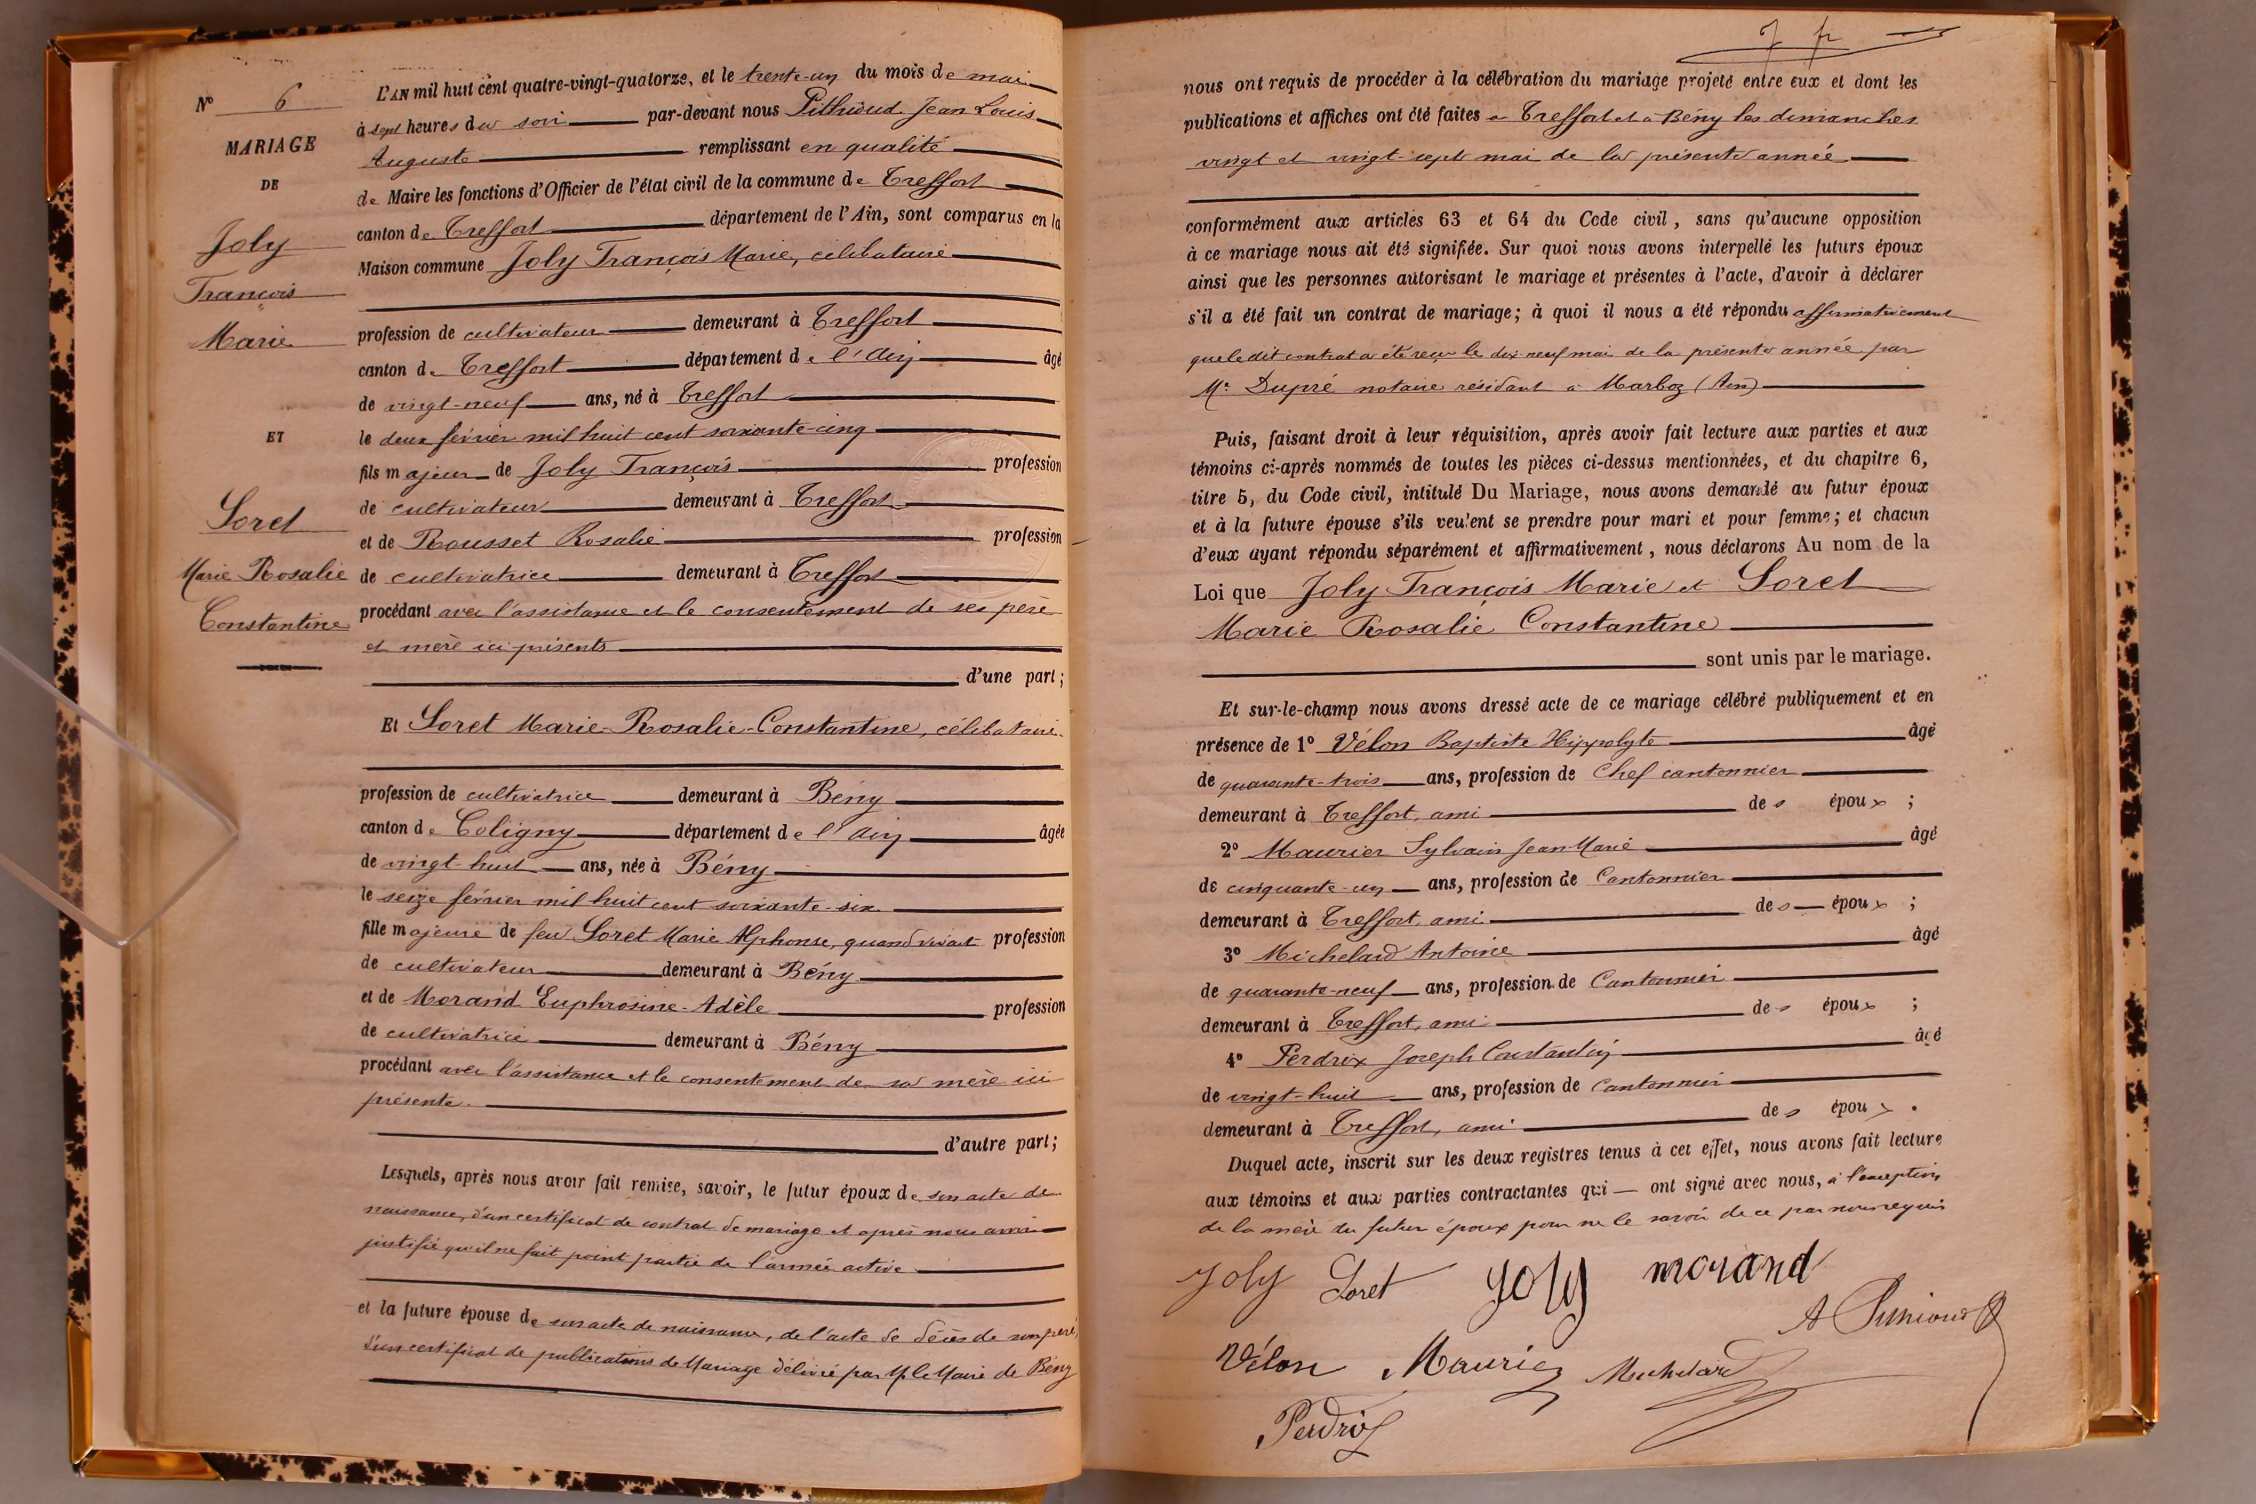 N° 6
MARIAGE
DE
Joly
François
Marie
ET
Loret
Marie Rosalie
Constantine
L'AN mil huit cent quatre-vingt-quatorze, et le trente-un du mois de mai
à sept heures du soir par-devant nous Pithioud Jean Louis
Auguste remplissant en qualité
de Maire les fonctions d'Officier de l'état civil de la commune de Treffort
canton de Treffort département de l'Ain, sont comparus en la
Maison commune Joly François Marie, célibataire
profession de cultivateur demeurant à Treffort
canton de Treffort département de l'Ain âgé
de vingt-neuf ans, né à Treffort
le deux février mil huit cent soixante-cinq
fils majeur de Joly François profession
de cultivateur demeurant à Treffort
et de Rousset Rosalie profession
de cultivatrice demeurant à Treffort
procédant avec l'assistance et le consentement de ses père
et mère ici présents
d'une part;
Et Loret Marie-Rosalie-Constantine, célibataire
profession de cultivatrice demeurant à Bény
canton de Coligny département de l'Ain âgée
de vingt-huit ans, née à Bény
le seize février mil huit cent soixante-six
fille majeure de feu Loret Marie Alphonse, quand vivait profession
de cultivateur demeurant à Bény
et de Morand Euphrosine-Adèle profession
de cultivatrice demeurant à Bény
procédant avec l'assistance et le consentement de sa mère ici
présente.
d'autre part;
Lesquels, après nous avoir fait remise, savoir, le futur époux de son acte de
naissance, d'un certificat de contrat de mariage et après nous avoir
justifié qu'il ne fait point partie de l'armée active
et la future épouse de son acte de naissance, de l'acte de décès de son père,
d'un certificat de publications de Mariage délivré par M. le Maire de Bény
7 fr
nous ont requis de procéder à la célébration du mariage projeté entre eux et dont les
publications et affiches ont été faites à Treffort et à Bény les dimanches
vingt et vingt-sept mai de la présente année
conformément aux articles 63 et 64 du Code civil, sans qu'aucune opposition
à ce mariage nous ait été signifiée. Sur quoi nous avons interpellé les futurs époux
ainsi que les personnes autorisant le mariage et présentes à l'acte, d'avoir à déclarer
s'il a été fait un contrat de mariage; à quoi il nous a été répondu affirmativement
que le dit contrat a été reçu le dix-neuf mai de la présente année par
Me Dupré notaire résidant à Marboz (Ain)
Puis, faisant droit à leur réquisition, après avoir fait lecture aux parties et aux
témoins ci-après nommés de toutes les pièces ci-dessus mentionnées, et du chapitre 6,
titre 5, du Code civil, intitulé Du Mariage, nous avons demandé au futur époux
et à la future épouse s'ils veulent se prendre pour mari et pour femme; et chacun
d'eux ayant répondu séparément et affirmativement, nous déclarons Au nom de la
Loi que Joly François Marie et Loret
Marie Rosalie Constantine
sont unis par le mariage.
Et sur-le-champ nous avons dressé acte de ce mariage célébré publiquement et en
présence de 1° Vélon Baptiste Hippolyte âgé
de quarante-trois ans, profession de Chef cantonnier
demeurant à Treffort, ami des époux ;
2° Maurier Sylvain Jean-Marie âgé
de cinquante-un ans, profession de Cantonnier
demeurant à Treffort, ami des époux ;
3° Michelard Antoine âgé
de quarante-neuf ans, profession de Cantonnier
demeurant à Treffort, ami des époux ;
4° Perdrix Joseph Constantin âgé
de vingt-huit ans, profession de Cantonnier
demeurant à Treffort, ami des époux.
Duquel acte, inscrit sur les deux registres tenus à cet effet, nous avons fait lecture
aux témoins et aux parties contractantes qui ont signé avec nous, à l'exception
de la mère du futur époux pour ne le savoir de ce par nous requis
Joly Loret Joly morand
Vélon Maurier Michelard
Perdrix